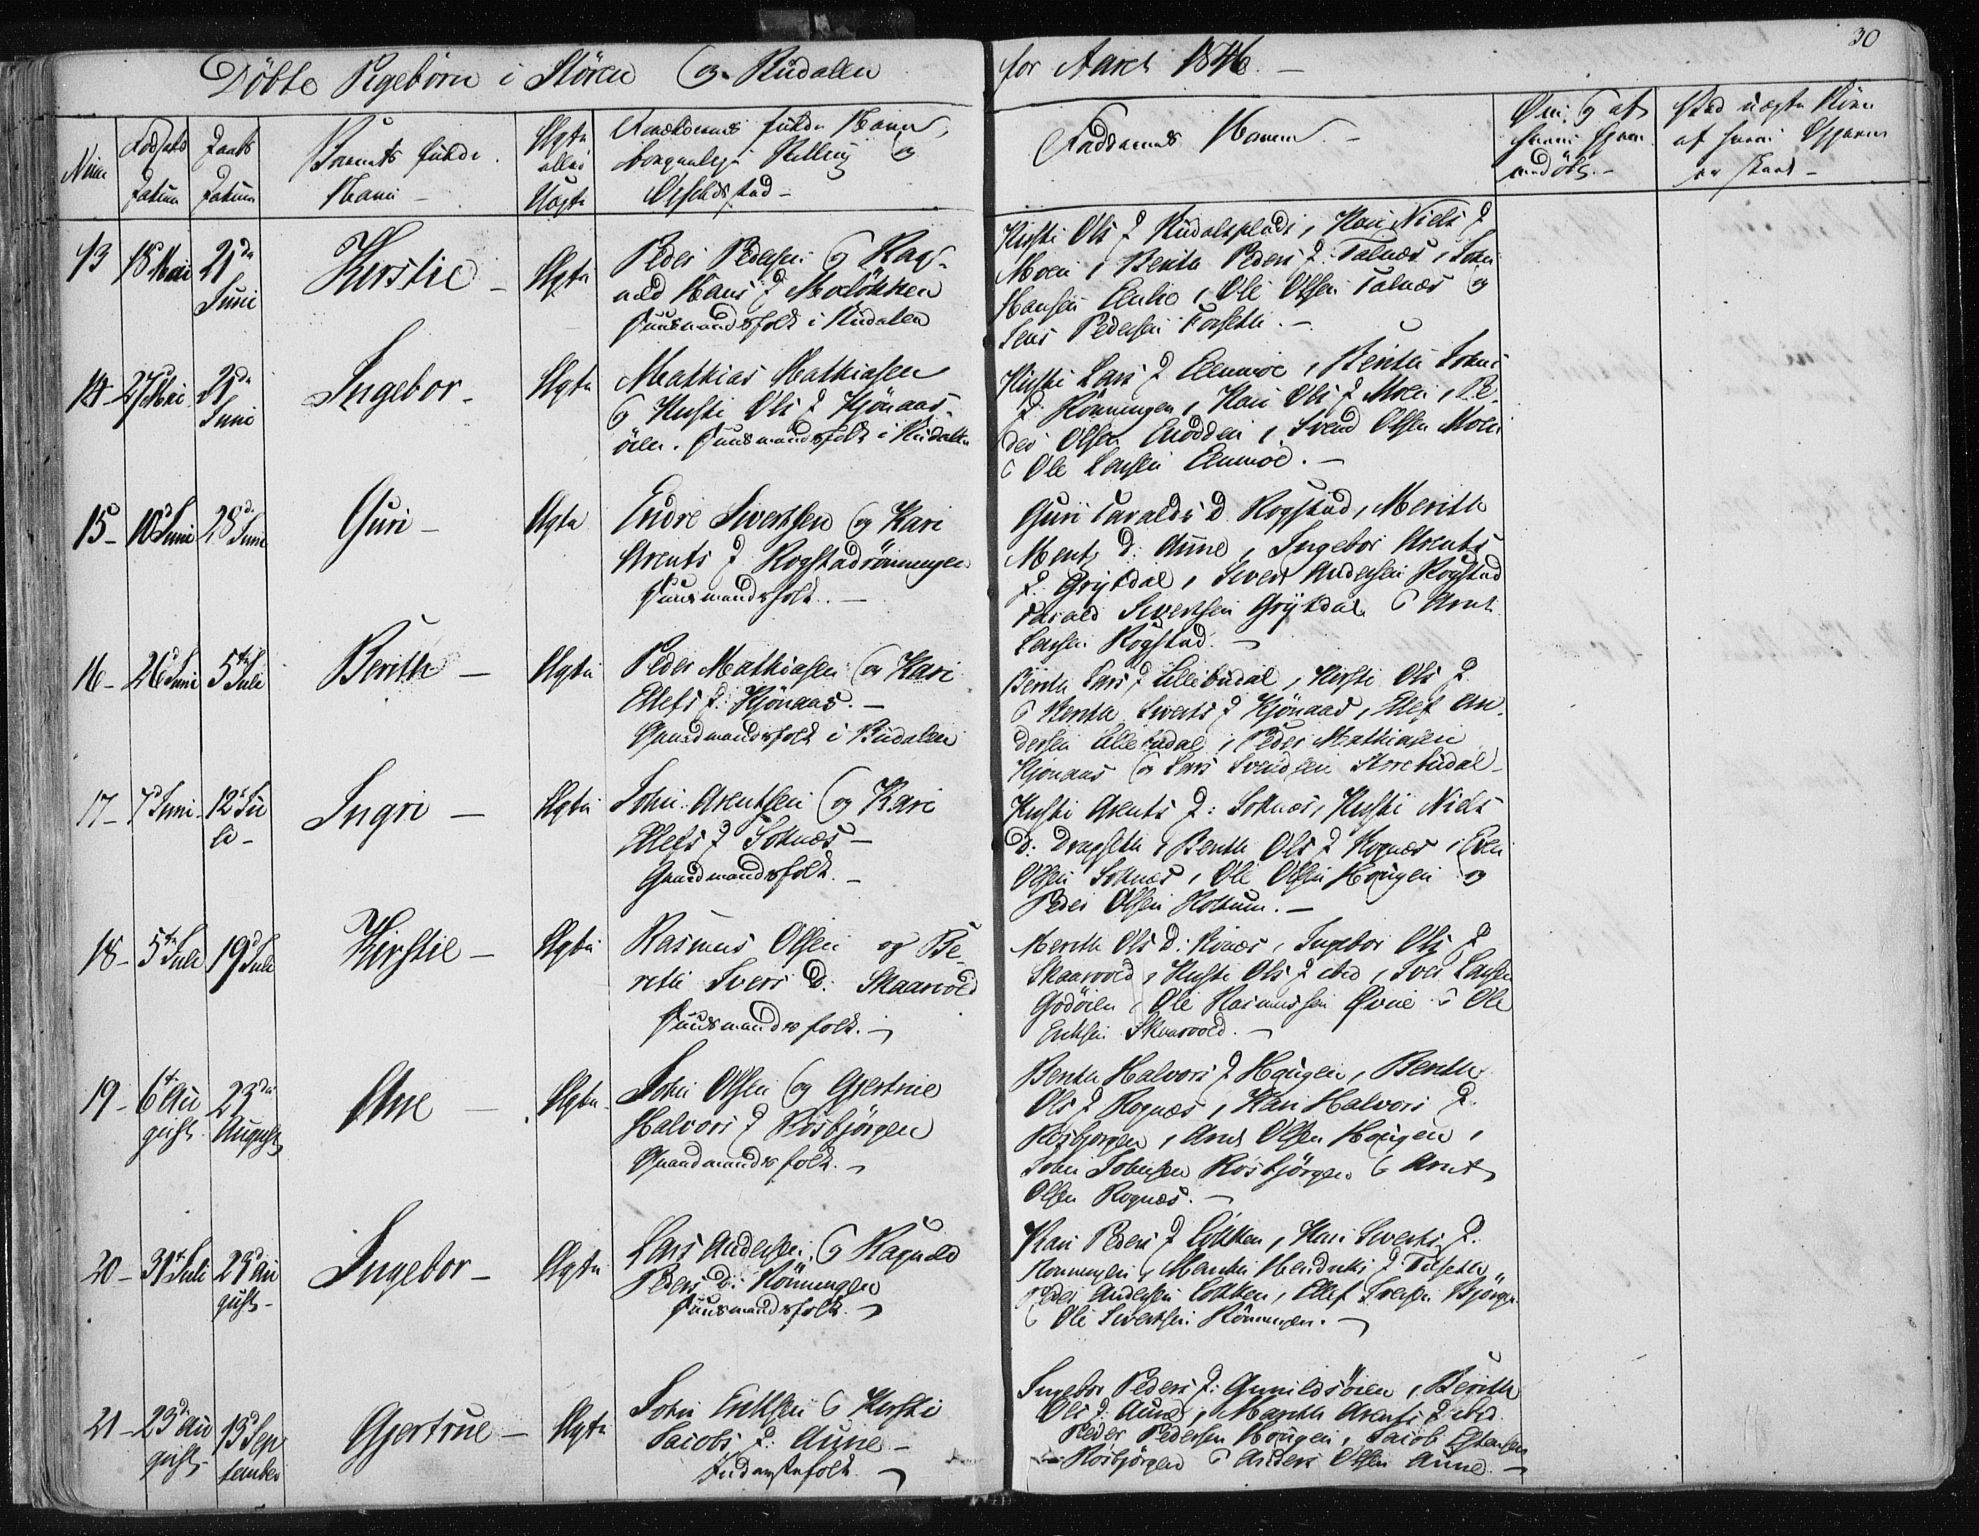 Döbte Pigebörn i Stören og Budalen
for Aaret 1846. —
30
Num
Födsels Datum
Daabs Datum
Barnets fulde Navn —
Ægte eller Uægte
Forældrenes fulde Navne, borgerlige Stilling og Opholdssted —
Faddernes Navne —
13
18 Mai
21de Juni
Kirstie —
Ægte
Peder Pedersen og Rag-
nild Hans D Moeløkken
Huusmandsfolk i Budalen
Kirsti Ols D Budalsplads, Kari Niels D
Moen, Berith Peders D. Talnæs, John
Hansen Enlie, Ole Olsen Talnæs og
Jens Pedersen Forseth. —
14
27 Mai
21de Juni
Ingebor —
Ægte
Mathias Mathiasen
og Kirsti Ols D Kjönaas-
öien. Huusmandsfolk i Budalen
Kirsti Lars D Enmoe, Berith Johns
D. Rönningen, Kari Ols D Moen, Pe-
der Olsen Enodden, Svend Olsen Moen
og Ole Larsen Enmoe. —
15 —
10d Juni
28d Juni
Guri —
Ægte
Endre Sivertsen og Kari
Arents D Rogstadrönningen
Huusmandsfolk. —
Guri Taralds D. Rogstad, Merith
Ments D. Aune, Ingebor Arents
D. Grytdal, Sivert Andersen Rogstad
Tarald Sivertsen Grytdal og Arnt
Larsen Rogstad. —
16 —
26d Juni
5te Juli
Berith —
Ægte
Peder Mathiasen og Kari
Ellefs D. Kjönaas. —
Gaardmandsfolk i Budalen
Berith Lars D Lillebudal, Kirsti Ols D
og Berith Siverts D Kjönaas, Ellef An-
dersen Lillebudal, Peder Mathiasen
Kjönaas og Lars Svendsen Storebudal —
17 —
7d Juni
12d Ju
li —
Ingri —
Ægte
John Arentsen og Kari
Ellefs D Soknæs —
Gaardmandsfolk. —
Kirsti Arents D: Soknæs, Kirsti Niels
D: Dragseth, Berith Ols D Rognæs, Even
Olsen Soknæs, Ole Olsen Hougen og
Peder Olsen Rostum. —
18 —
5te Juli
19d Juli
Kirstie —
Ægte
Rasmus Olsen og Be-
reth Ivers D: Skaarvold
Huusmandsfolk. —
Merith Ols D: Kvæs, Ingebor Ols D
Skaarvold, Kirsti Ols D ibid, Iver Larsen
Godöien, Ole Rasmussen Övrie og Ole
Eriksen Skaarvold. —
19 —
6te Au
gust
23de August
Ane —
Ægte
John Olsen og Gjertrue
Halvors D Rosbjörgen
Gaardmandsfolk. —
Berith Halvors D Hougen, Berith
Ols D Rognæs, Kari Halvors D.
Rosbjörgen, Arnt Olsen Hougen,
John Johnsen Rosbjörgen og Arnt
Olsen Rognæs. —
20 —
31te Juli
23d Au
gust —
Ingebor —
Ægte
Lars Andersen og Ragnild
Peders D: Rönningen
Huusmandsfolk. —
Kari Peders D Løkken, Kari Siverts D.
Rönningen, Marith Hendriks D Folseth
Peder Andersen Løkken, Ellef Larsen Bjørgen
og Ole Sivertsen Rönningen. —
21 —
23de Au
gust —
13d Sep
tember
Gjertrue —
Ægte
John Eriksen og Kirsti
Jacobs D: Aune —
Inderstefolk. —
Ingebor Peders D: Gunildsöien, Berith
Ols D. Aune, Marith Arents D ibid.
Peder Pedersen Hougen, Jacob Estensen
Rosbjörgen og Anders Olsen Aune. —